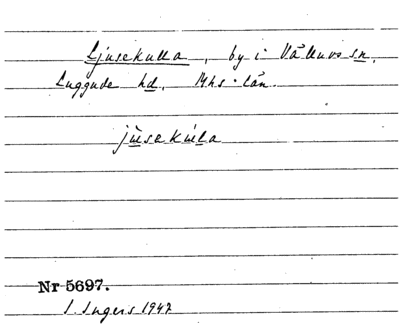 Ljusekulla, by i Välluvs sn,
Luggude hd, Mhs. län.
jùsekúla
Nr 5697.
I. Ingers 1947